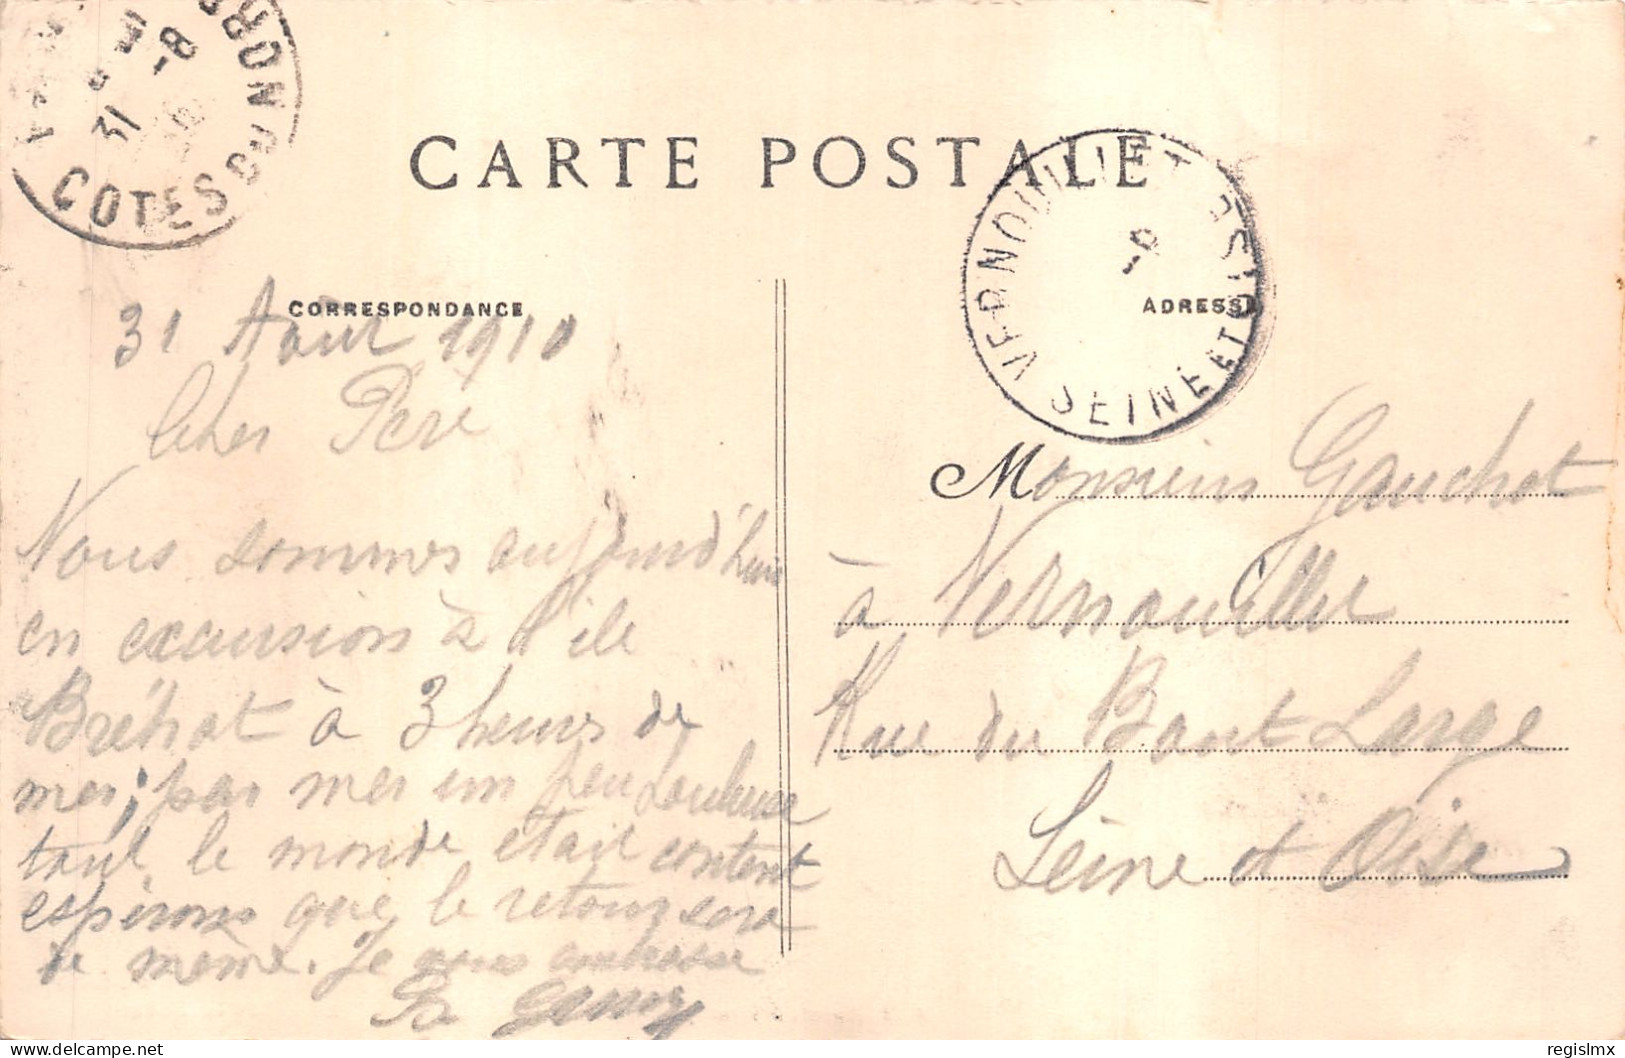 31 -8
COTES DU NORD
CARTE POSTALE
VERNOUILLET
SEINE ET OISE
CORRESPONDANCE
ADRESSE
31 Août 1910
Cher Père
Nous sommes aujourd'hui
en excursion à l'ile
Bréhat à 3 heures de
mer, par mer un peu houleuse
tout le monde était content
espérons que le retour sera
de meme. Je vous embrasse
Monsieur Gauchot
à Vernouillet
Rue du Bout Large
Seine et Oise
regislmx